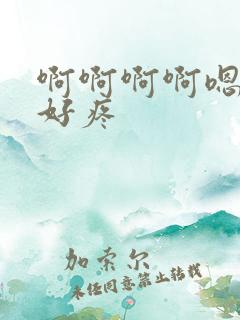 啊啊啊啊嗯
好疼
加索尔
未经同意禁止转载